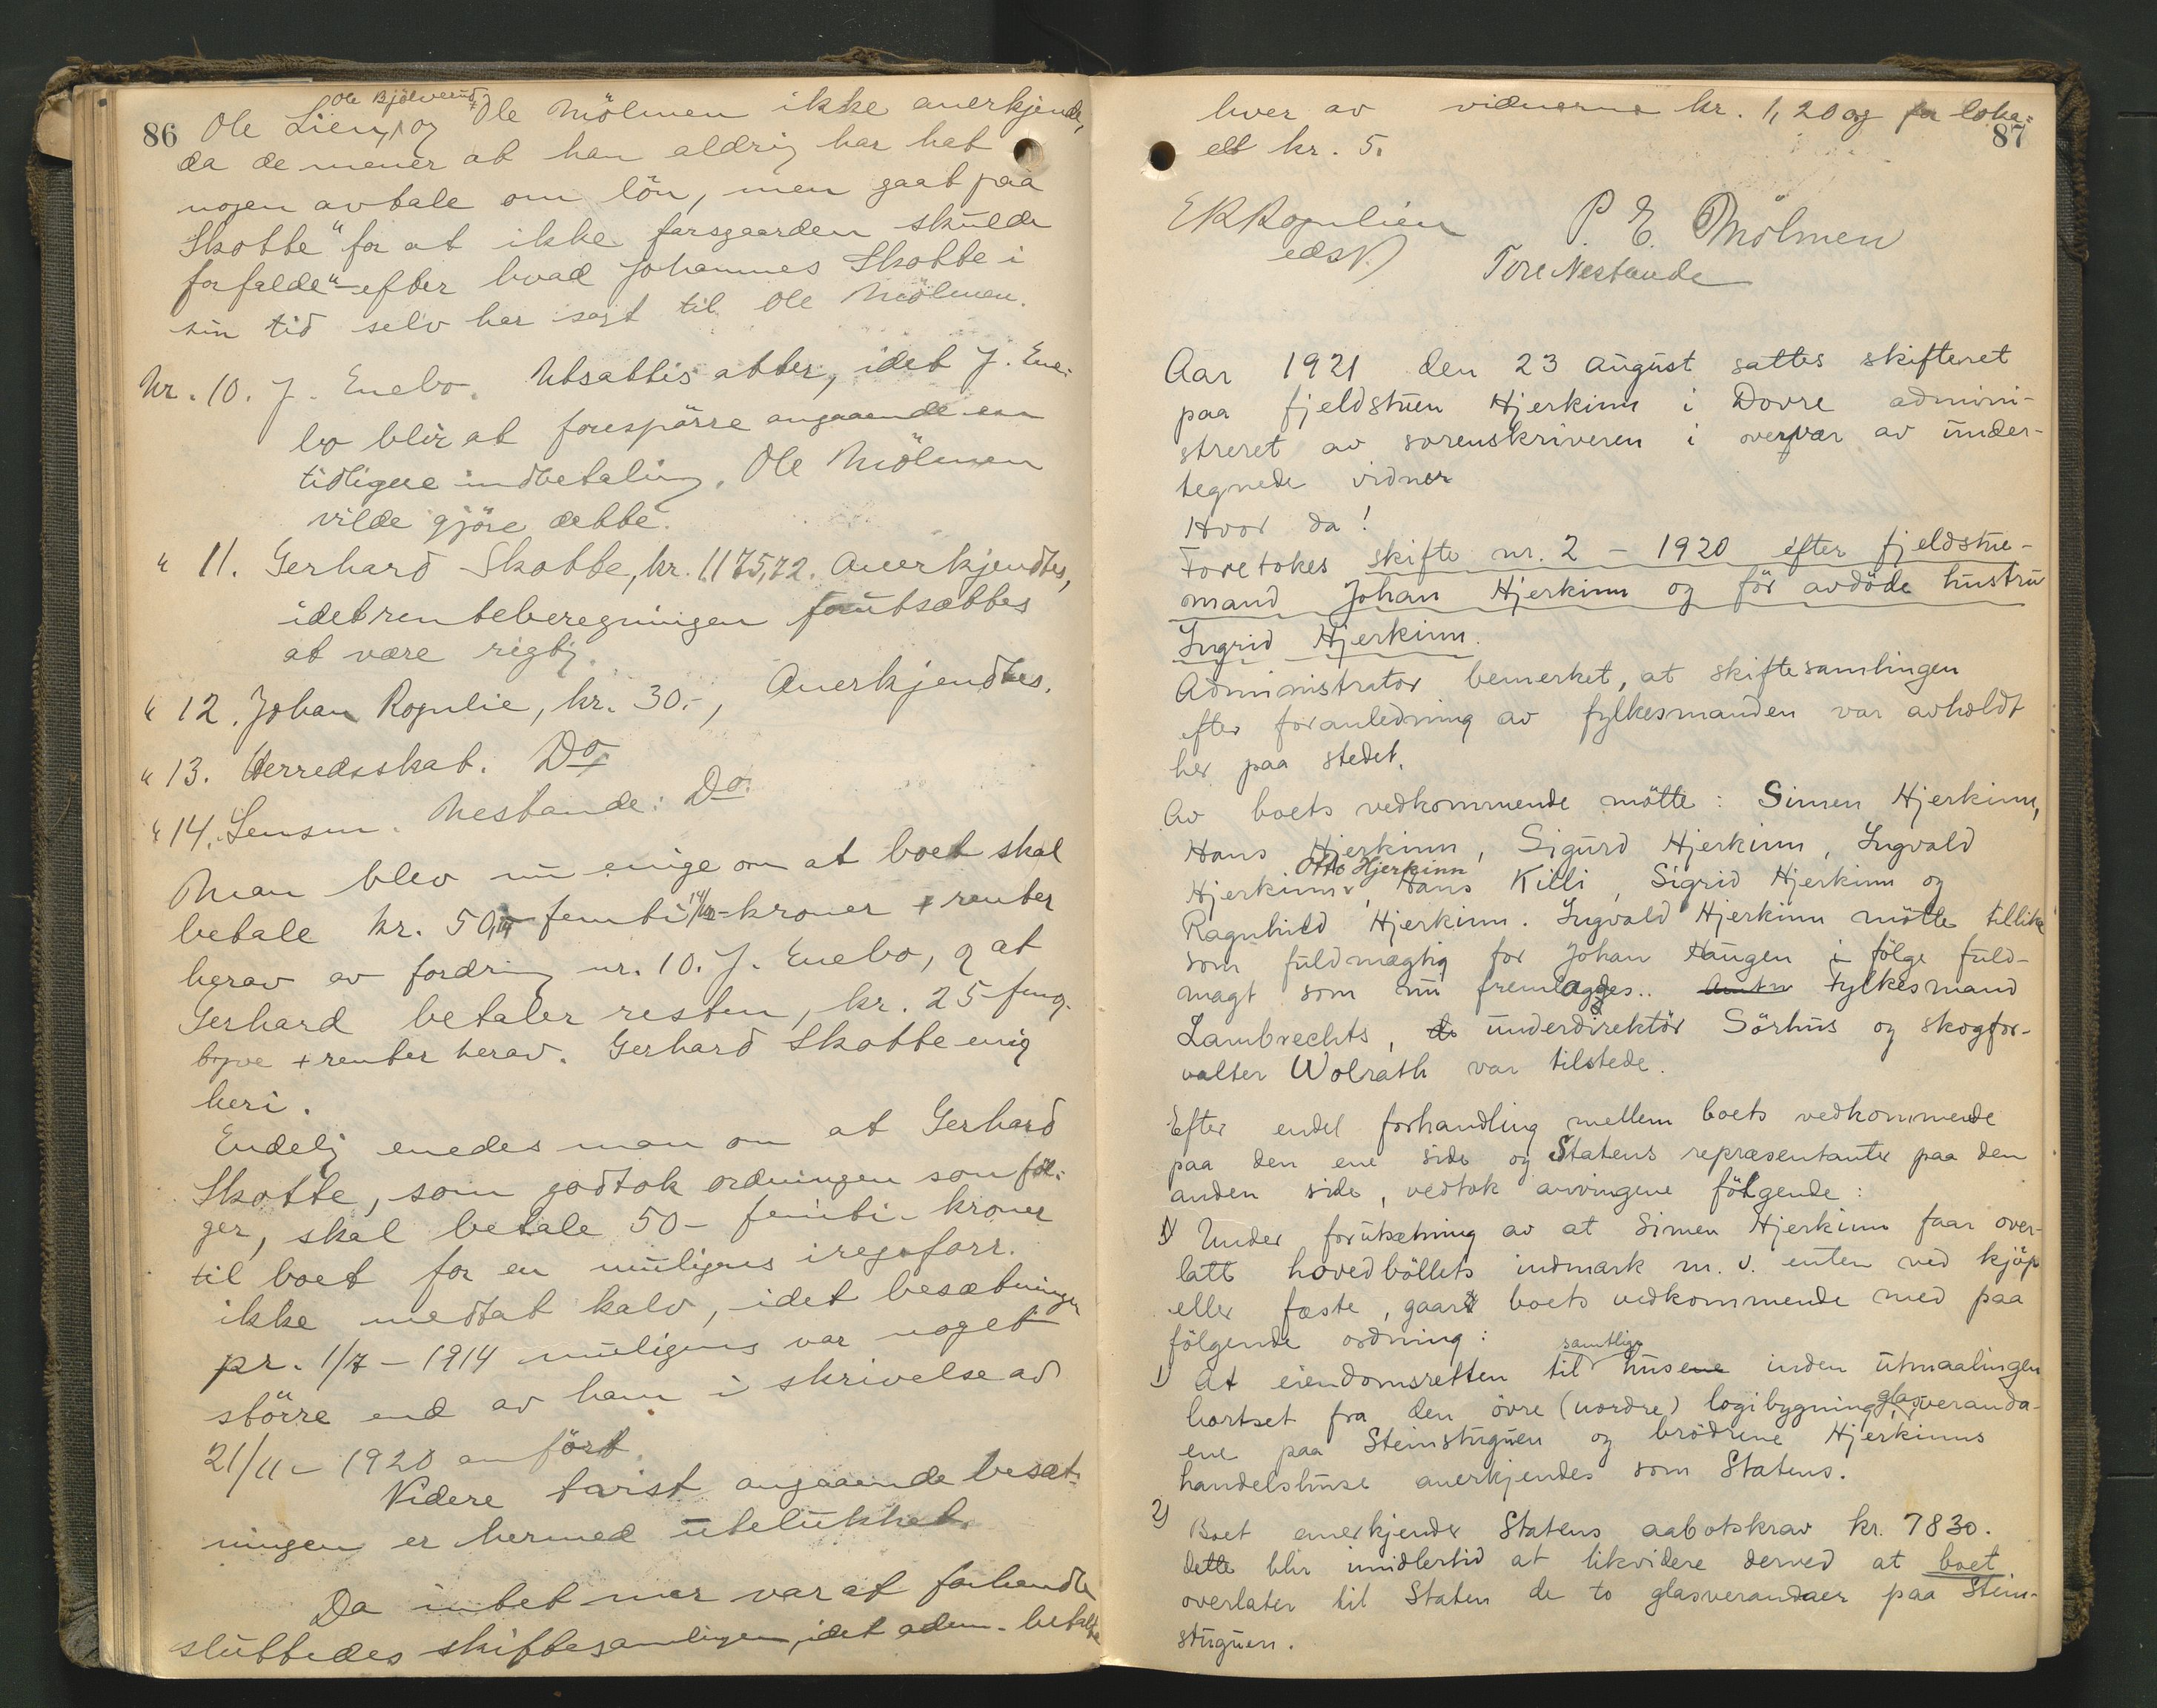 86
Ole Lien, Ole Bjölverud og Ole Mölmen ikke anerkjende,
da de mener at han aldrig har hat
nogen avtale om lön, men gaat paa
Skotte "for at ikke farsgaarden skulde
forfalde" - efter hvad Johannes Skotte i
sin tid selv har sagt til Ole Mölmen.
Nr. 10. J. Enebo. Utsattes atter, idet J. Ene-
bo blir at forespörre angaaende en
tidligere indbetaling. Ole Mölmen
vilde gjöre dette.
" 11. Gerhard Skotte, kr. 1175,72. Anerkjendtes,
idet renteberegningen forutsættes
at være rigtig.
" 12. Johan Rognlie, kr. 30.-, Anerkjendtes.
" 13. Herredsskat. Do.
" 14. Lensm. Nestande: Do.
Man blev nu enige om at boet skal
betale kr. 50, femti kroner + renter
herav av fordring nr. 10. J. Enebo, og at
Gerhard betaler resten, kr. 25 - fem og
tyve + renter herav. Gerhard Skotte enig
heri.
Endelig enedes man om at Gerhard
Skotte, som godtok ordningen som föl-
ger, skal betale 50 - femti - kroner
til boet for en muligens i regnf.
ikke medtat kalv, idet besætningen
pr. 1/7 - 1914 muligens var noget
större end av ham i skrivelse av
21/11 - 1920 anfört.
Videre tvist angaaende besæt-
ningen er hermed utelukket.
Da intet mer var at forhandle
sluttedes skiftesamlingen, idet adm. betalte
87
hver av vidnerne kr. 1,20 og for loka-
elt kr. 5.
EKRognlien
edsv.
P. E. Mölmen
Tore Nestande
Aar 1921 den 23 august sattes skifteret
paa fjeldstuen Hjerkinn i Dovre admini-
streret av sorenskriveren i overvær av under-
tegnede vidner
Hvor da!
Foretokes skifte nr. 2 - 1920 efter fjeldstue-
mand Johan Hjerkinn og för avdöde hustru
Ingrid Hjerkinn.
Administrator bemerket, at skiftesamlingen
efter foranledning av fylkesmanden var avholdt
her paa stedet.
Av boets vedkommende mötte: Simen Hjerkinn,
Hans Hjerkinn, Sigurd Hjerkinn, Ingvald
Hjerkinn, Otto Hjerkinn, Hans Killi, Sigrid Hjerkinn og
Ragnhild Hjerkinn. Ingvald Hjerkinn mötte tillike
som fuldmægtig for Johan Haugen i fölge fuld-
magt som nu fremlægges.. Amtm Fylkesmand
Lambrechts, de underdirektör Sörhus og skogfor-
valter Wolrath var tilstede.
Efter endel forhandling mellem boets vedkommende
paa den ene side og Statens repræsentanter paa den
anden side, vedtok arvingene fölgende:
1) Under forutsætning av at Simen Hjerkinn faar over-
latt hovedböllets indmark m. v. enten ved kjöp
eller fæste, gaar boets vedkommende med paa
fölgende ordning:
1) At eiendomsretten til samtlige husene inden utmaalingen
bortset fra den övre (nordre) logibygning, glasveranda-
ene paa Steinstuguen og brödrene Hjerkinns
handelshuse anerkjendes som Statens.
2) Boet anerkjender Statens aabotskrav kr. 7830.
dette blir imidlertid at likvidere derved at boet
overlater til Staten de to glasverandaer paa Stein-
stuguen.